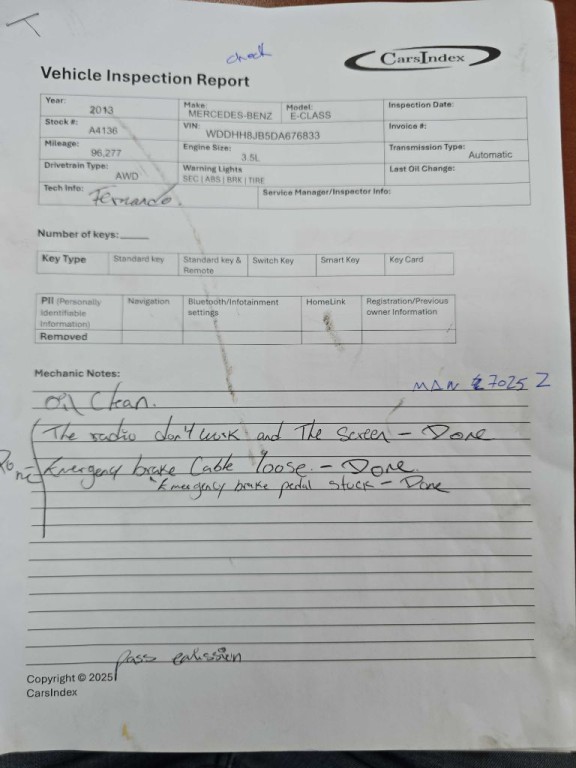 check
CarsIndex
Vehicle Inspection Report
Year: 2013 Make: MERCEDES-BENZ Model: E-CLASS Inspection Date:
Stock #: A4136 VIN: WDDHH8JB5DA676833 Invoice #:
Mileage: 96,277 Engine Size: 3.5L Transmission Type: Automatic
Drivetrain Type: AWD Warning Lights SEC | ABS | BRK | TIRE Last Oil Change:
Tech Info: Fernando. Service Manager/Inspector Info:
Number of keys:
Key Type Standard key Standard key & Remote Switch Key Smart Key Key Card
PII (Personally Identifiable Information) Navigation Bluetooth/Infotainment settings HomeLink Registration/Previous owner Information
Removed
Mechanic Notes:
MAN 7025 Z
Oil Clean.
The radio don't work and The Screen - Done
Emergency brake Cable loose. - Done.
Emergency brake pedal stuck - Done
pass emission
Copyright © 2025
CarsIndex